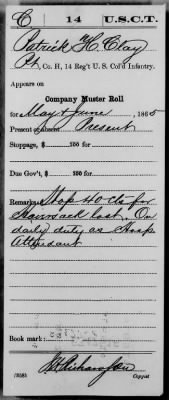 C | 14 | U.S.C.T.
Patrick H. Clay
Pt, Co. H, 14 Reg't U. S. Col'd Infantry.
Appears on
Company Muster Roll
for May & June, 1865
Present or absent Present
Stoppage, $ 100 for
Due Gov't, $ 100 for
Remarks: Stop 40 cts for
Haversack lost. On
daily duty as Hosp
Attendant
Book mark:
Richardson
(358) Copyist